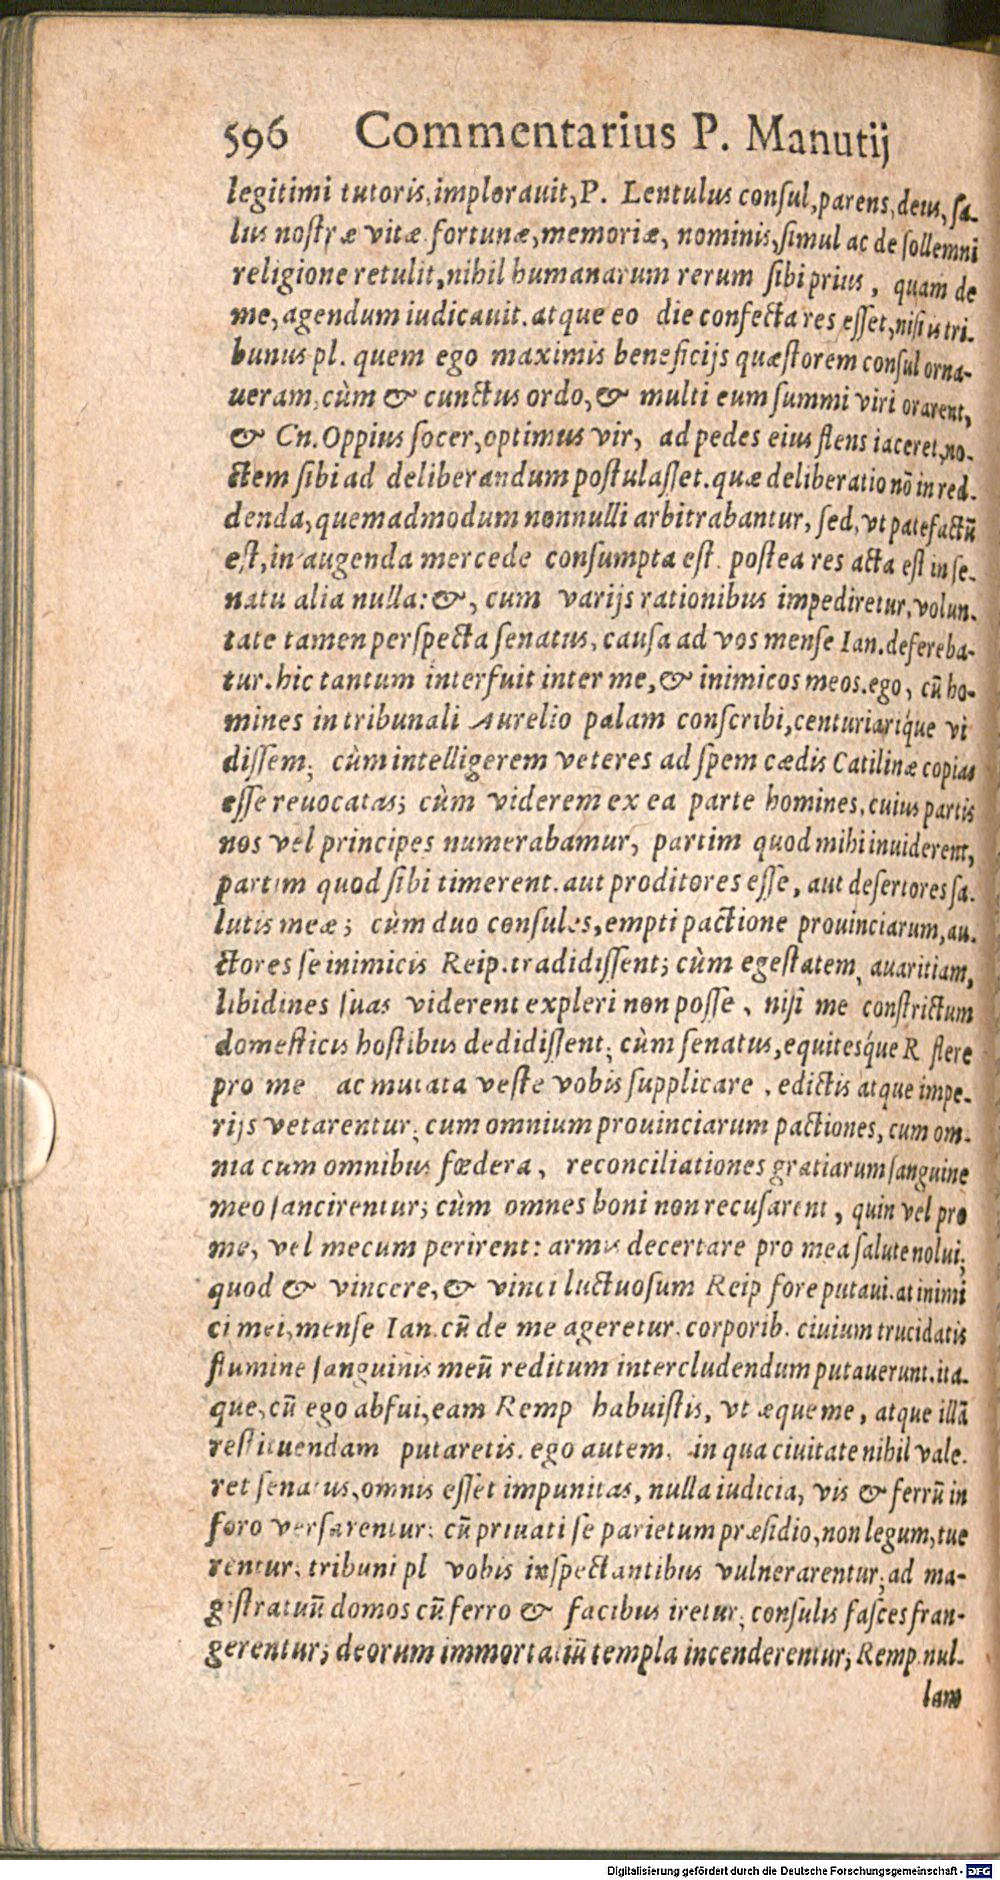 596 Commentarius P. Manutij
legitimi tutoris, implorauit, P. Lentulus consul, parens, deus, sa-
lus nostræ vitæ fortunæ, memoriæ, nominis, simul ac de sollemni
religione retulit, nihil humanarum rerum sibi prius, quam de
me, agendum iudicauit. atque eo die confecta res esset, nisi is tri-
bunus pl. quem ego maximis beneficijs quæstorem consul orna-
ueram, cùm & cunctus ordo, & multi eum summi viri orarent,
& Cn. Oppius socer, optimus vir, ad pedes eius flens iaceret, no-
ctem sibi ad deliberandum postulasset. quæ deliberatio nō in red-
denda, quemadmodum nonnulli arbitrabantur, sed, vt patefactū
est, in augenda mercede consumpta est. postea res acta est in se-
natu alia nulla: &, cum varijs rationibus impediretur, volun-
tate tamen perspecta senatus, causa ad vos mense Ian. defereba-
tur. hic tantum interfuit inter me, & inimicos meos. ego, cū ho-
mines in tribunali Aurelio palam conscribi, centuriariq́ue vi
dissem; cùm intelligerem veteres ad spem cædis Catilinæ copias
esse reuocatas; cùm viderem ex ea parte homines, cuius partis
nos vel principes numerabamur, partim quod mihi inuiderent,
partim quod sibi timerent. aut proditores esse, aut desertores sa-
lutis meæ; cùm duo consules, empti pactione prouinciarum, au-
ctores se inimicis Reip. tradidissent; cùm egestatem, auaritiam,
libidines suas viderent expleri non posse, nisi me constrictum
domesticis hostibus dedidissent; cùm senatus, equitesq́ue R flere
pro me ac mutata veste vobis supplicare, edictis atque impe-
rijs vetarentur; cum omnium prouinciarum pactiones, cum om-
nia cum omnibus fœdera, reconciliationes gratiarum sanguine
meo sancirentur; cùm omnes boni non recusarent, quin vel pro
me, vel mecum perirent: armis decertare pro mea salute nolui;
quod & vincere, & vinci luctuosum Reip fore putaui. at inimi
ci mei, mense Ian. cū de me ageretur. corporib. ciuium trucidatis
flumine sanguinis meū reditum intercludendum putauerunt. ita-
que, cū ego abfui, eam Remp habuistis, vt æque me, atque illā
restituendam putaretis. ego autem, in qua ciuitate nihil vale-
ret senatus, omnis esset impunitas, nulla iudicia, vis & ferrū in
foro versarentur; cū priuati se parietum præsidio, non legum, tue
rentur; tribuni pl vobis inspectantibus vulnerarentur; ad ma-
gistratuū domos cū ferro & facibus iretur; consulis fasces fran-
gerentur; deorum immortaliū templa incenderentur; Remp. nul-
lam
Digitalisierung gefördert durch die Deutsche Forschungsgemeinschaft - DFG